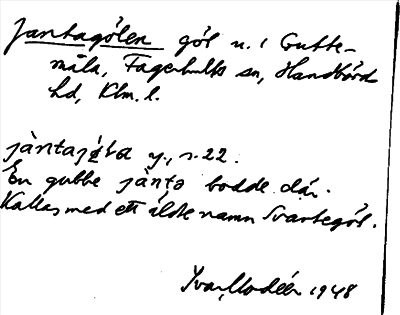 Jantagölen göl n. i Gutte-
måla, Fagerhults sn, Handbörds
hd, Klm. l.
jàntajö́lɐn y., s. 22.
En gubbe jàntə bodde där.
Kallas med ett äldre namn Svartegöl.
Ivar Modéer 1948